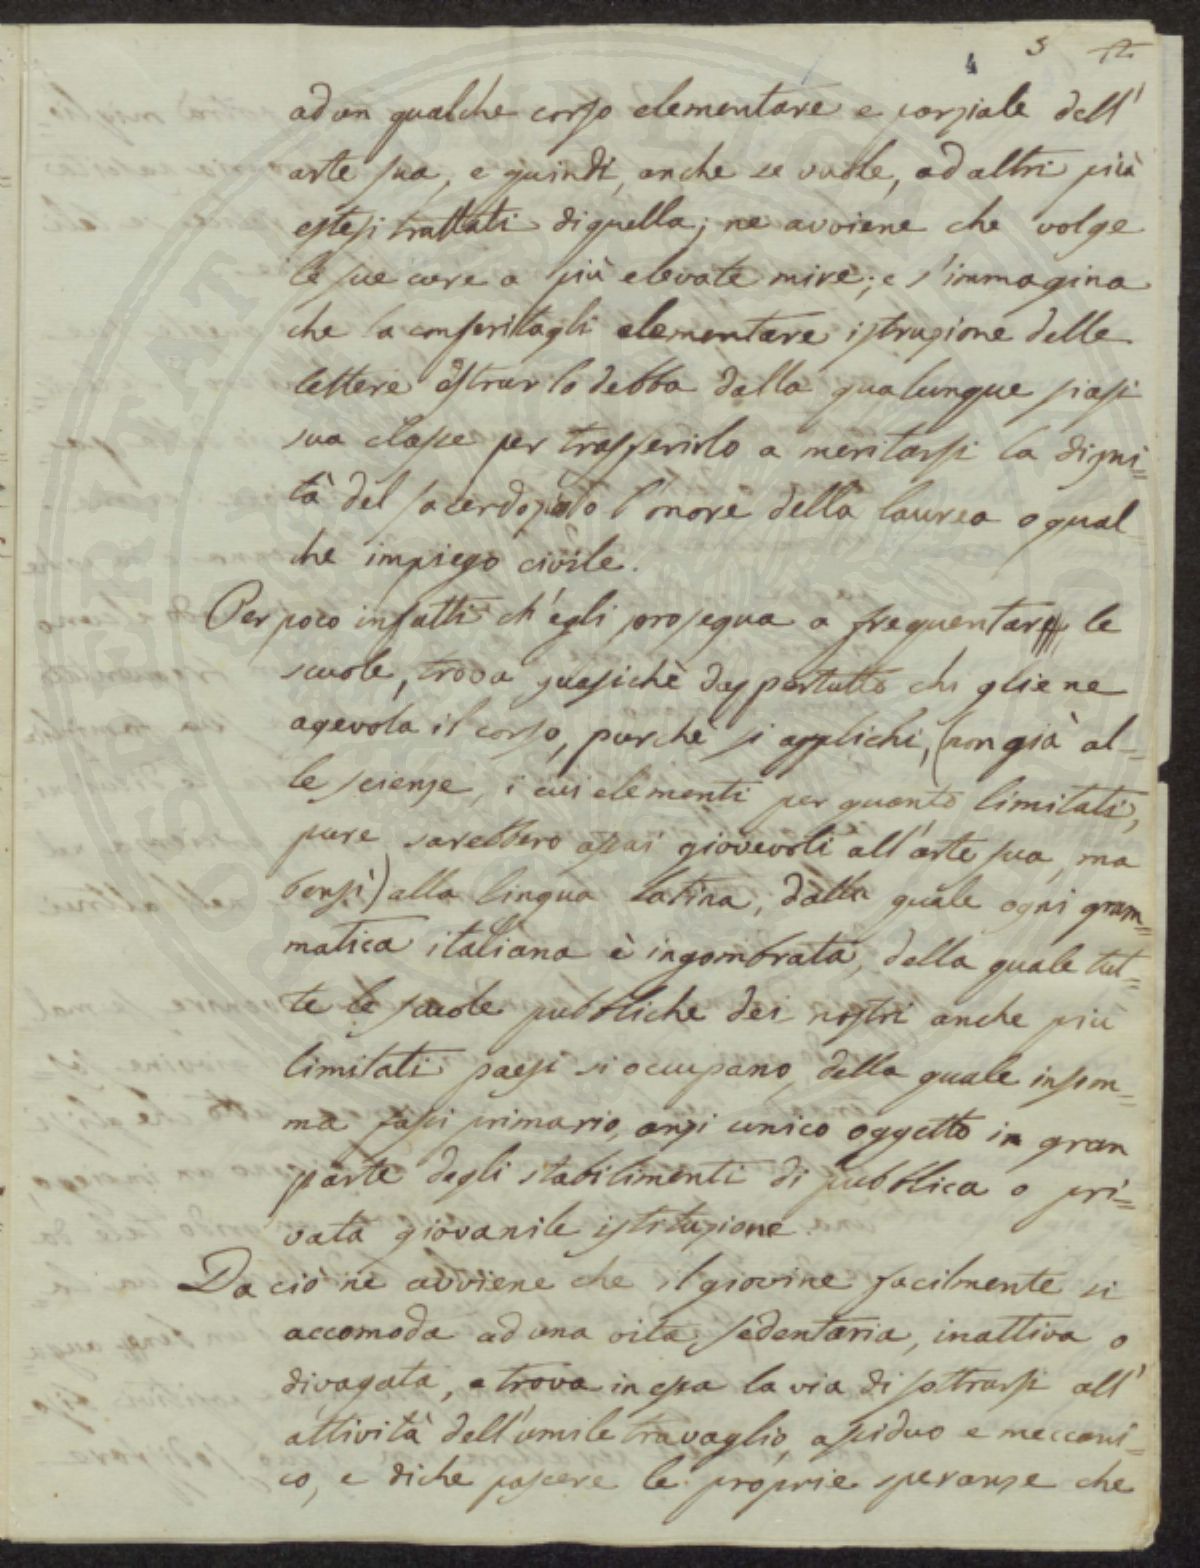 4 3
ad un qualche corso elementare e parziale dell'
arte sua, e quindi, anche se vuole, ad altri più
estesi trattati di quella; ne avviene che volge
le sue cure a più elevate mire; e s'immagina
che la conferitagli elementare istruzione delle
lettere estrarlo debba dalla qualunque siasi
sua classe per trasferirlo a meritarsi la digni=
tà del sacerdozio l'onore della laurea o qual
che impiego civile.
Per poco infatti ch'egli prosegua a frequentar le
scuole, trova quasichè dappertutto chi gliene
agevola il corso, purchè si applichi, (non già al-
le scienze, i cui elementi per quanto limitati,
pure sarebbero assai giovevoli all'arte sua, ma
bensì) alla lingua latina, dalla quale ogni gram=
matica italiana è ingombrata, della quale tut=
te le scuole pubbliche dei nostri anche più
limitati paesi si occupano, della quale insom=
ma fassi primario, anzi unico oggetto in gran
parte degli stabilimenti di pubblica o pri=
vata giovanile istituzione.
Da ciò ne avviene che il giovine facilmente si
accomoda ad una vita sedentaria, inattiva o
divagata, e trova in essa la via di sottrarsi all'
attività dell'umile travaglio, assiduo e meccani=
co, e di che pascere le proprie speranze che